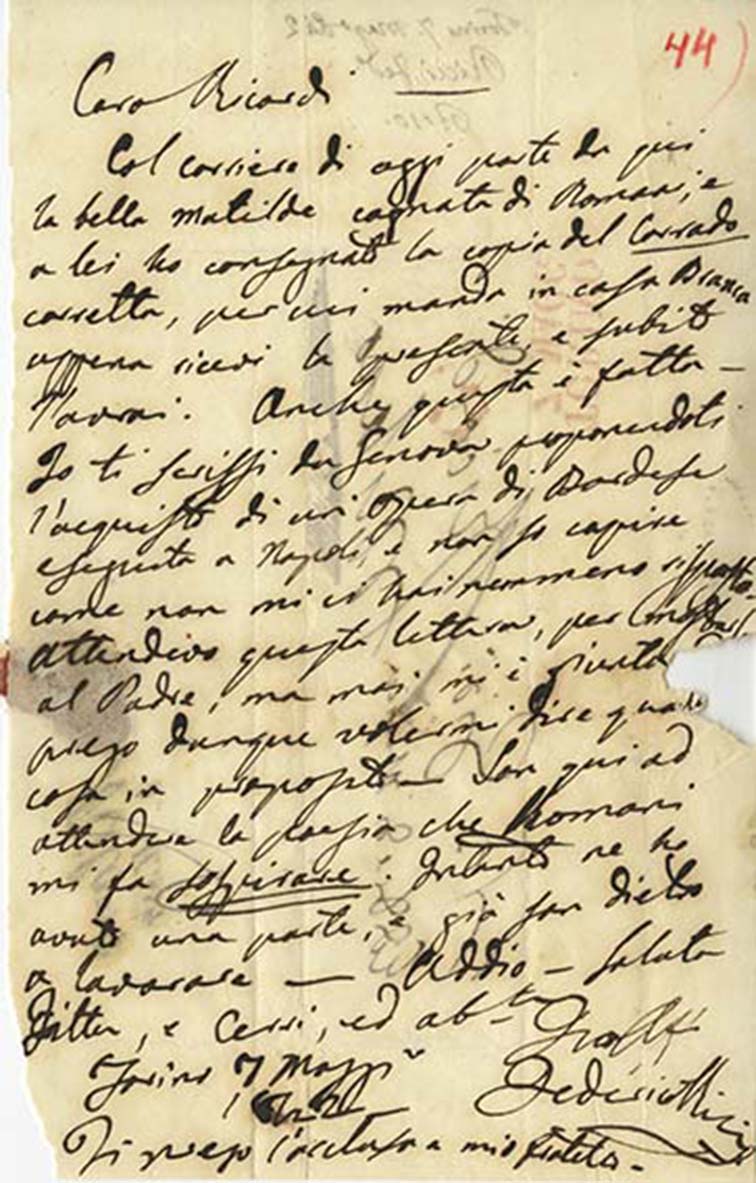 44)
Caro Ricordi
Col corriere di oggi parte da qui
la bella Matilde cognata di Romani, e
a lei ho consegnato la copia del Corrado
corretta, per cui manda in casa Branca
appena ricevi la presente, e subito
l'avrai. Anche questa è fatta —
Io ti scrissi da Genova proponendoti
l'acquisto di un'opera di Bordese
eseguita a Napoli, e non so capire
come non mi ci hai nemmeno risposto
attendevo questa lettera, per
al Padre, ma mai mi è giunta
prego dunque volermi dire qualche
cosa in proposito — Son qui ad
attendere la poesia che Romani
mi fa sospirare. Intanto ne ho
avuto una parte, e già son dietro
a lavorare — Addio — Saluta
, e Cerri, ed
Torino 7 Maggio
Federico Ricci
Ti prego l'acclusa a mio fratello.